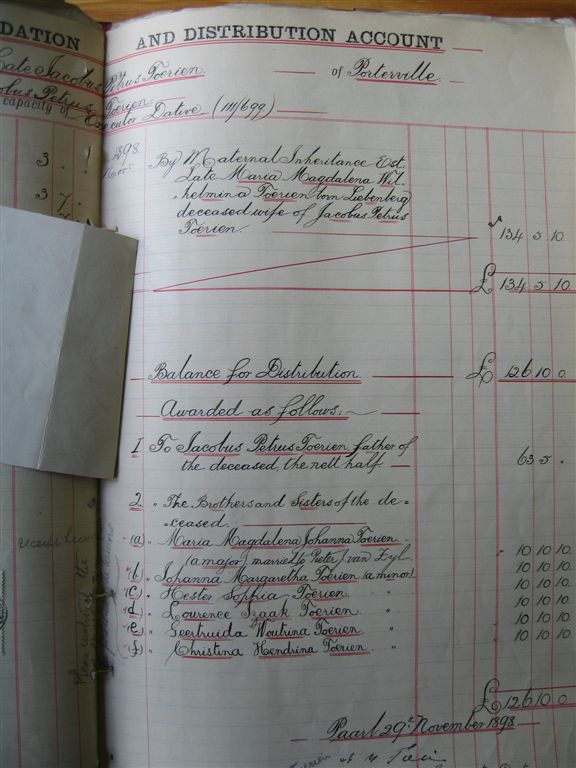 DATION
AND DISTRIBUTION ACCOUNT
Late Jacobus Petrus Toerien. of Porterville.
obus Petrus Toerien
capacity of Executor Dative (111/699)
3
3 7
1898
Nov: By Maternal Inheritance Est.
Late Maria Magdalena Wil-
helmina Toerien born Liebenberg
deceased wife of Jacobus Petrus
Toerien. 134 5 10
£ 134 5 10
Balance for Distribution. £ 126 10 0
Awarded as follows:
1 To Jacobus Petrus Toerien father of
the deceased, the nett half 63 5 .
2 " The Brothers and Sisters of the de=
=ceased.
(a) " Maria Magdalena Johanna Toerien
(a major) married to Pieter J van Zyl 10 10 10
(b) " Johanna Margaretha Toerien (a minor) 10 10 10
(c) " Hester Sophia Toerien " 10 10 10
(d) " Lourence Izaak Toerien " 10 10 10
(e) " Geertruida Woutrina Toerien " 10 10 10
(f) " Christina Hendrina Toerien " 10 10 10
£ 126 10 0
Paarl 29th November 1898.